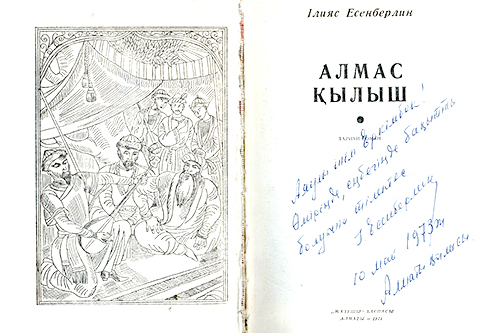 Ілияс Есенберлин
АЛМАС
ҚЫЛЫШ
ТАРИХИ РОМАН
Аяулы інім Еркімбек!
Өмірде, еңбегіңде бақытты
болуыңа тілектес
І. Есенберлин
10 май 1973 ж
Алматы қаласы
„ЖАЗУШЫ“ БАСПАСЫ
АЛМАТЫ — 1971